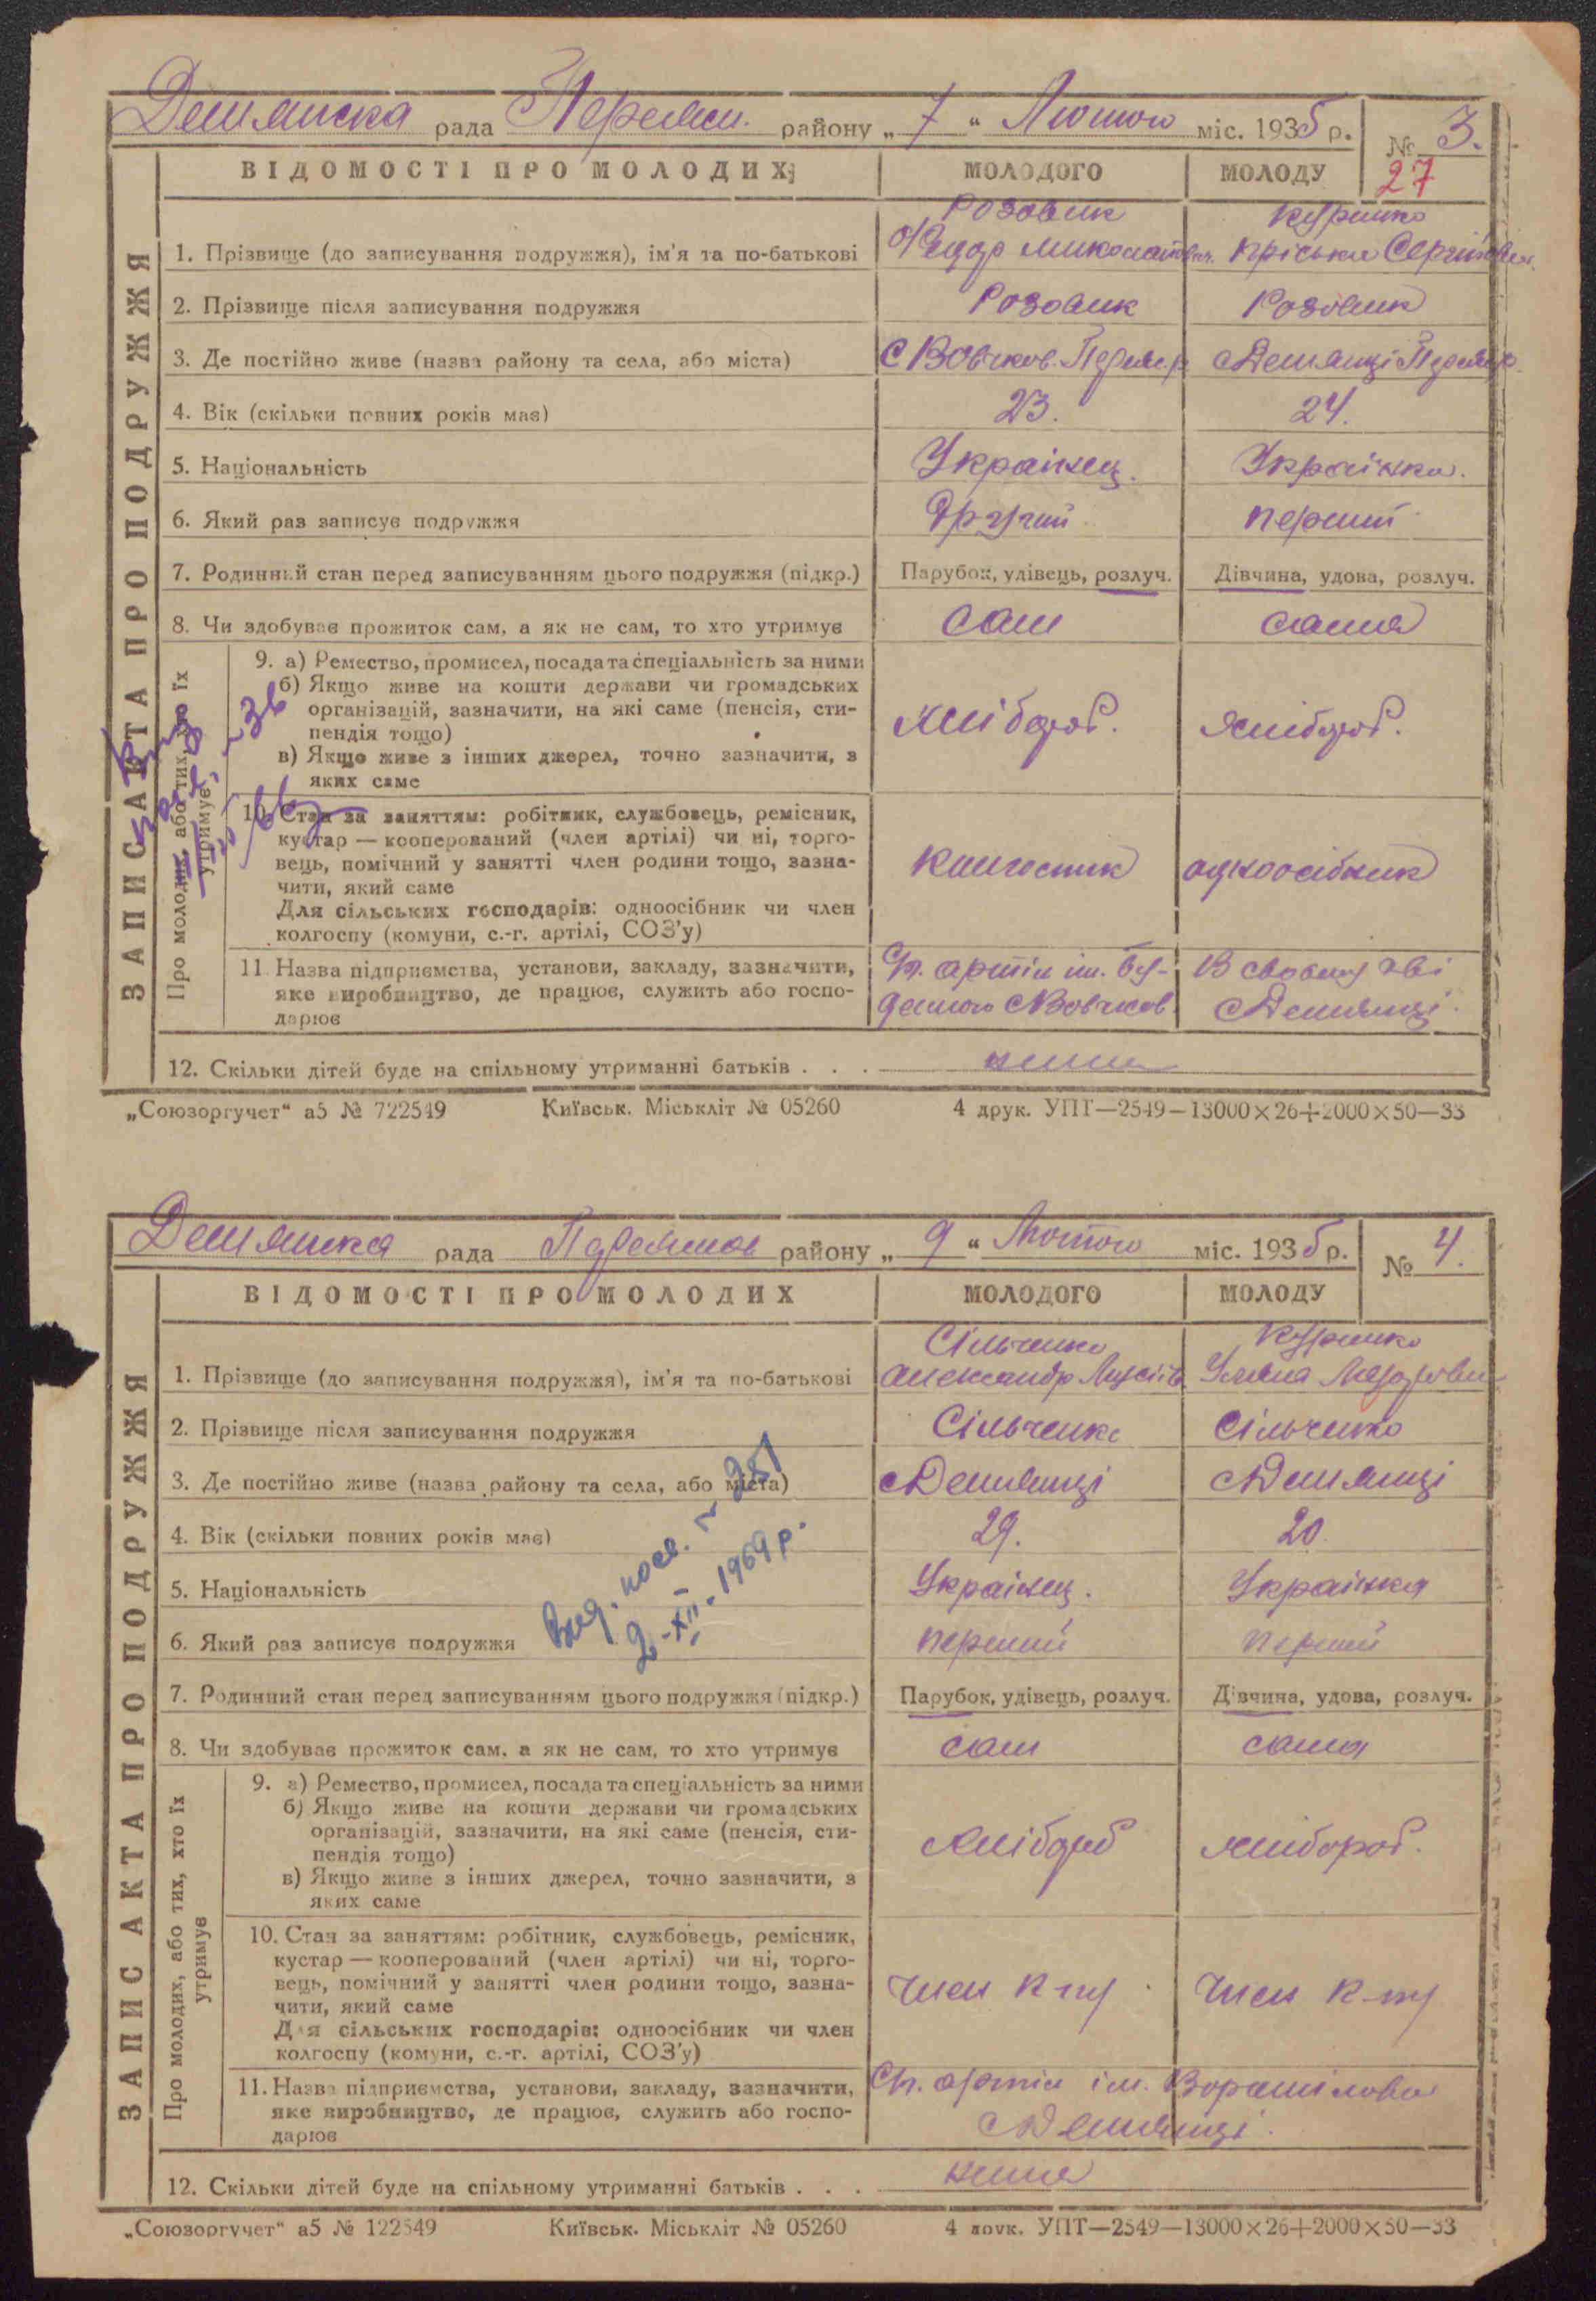 Демянска рада Переясл. району „ 7 “ Лютого міс. 1935 р.
№ 3.
27
ВІДОМОСТІ ПРО МОЛОДИХ
МОЛОДОГО
МОЛОДУ
ЗАПИС АКТА ПРО ПОДРУЖЖЯ
1. Прізвище (до записування подружжя), ім'я та по-батькові
Розовик
Федор Миколаївич.
Куринко
Пріська Сергіївна.
2. Прізвище після записування подружжя
Розовик
Розовик
3. Де постійно живе (назва району та села, або міста)
с Вовчков. Переяс. р
с Демянці Переяс р.
4. Вік (скільки повних років має)
23.
24.
5. Національність
Українец.
Українка.
6. Який раз записує подружжя
Другий
перший
7. Родинний стан перед записуванням цього подружжя (підкр.)
Парубок, удівець, розлуч.
Дівчина, удова, розлуч.
8. Чи здобуває прожиток сам, а як не сам, то хто утримує
сам
сама
Про молодих, або тих, хто їх утримує
9. а) Ремество, промисел, посада та спеціальність за ними
б) Якщо живе на кошти держави чи громадських
організацій, зазначити, на які саме (пенсія, сти-
пендія тощо)
в) Якщо живе з інших джерел, точно зазначити, з
яких саме
хлібороб.
хлібороб.
10. Стан за заняттям: робітник, службовець, ремісник,
кустар — кооперований (член артілі) чи ні, торго-
вець, помічний у занятті член родини тощо, зазна-
чити, який саме
Для сільських господарів: одноосібник чи член
колгоспу (комуни, с.-г. артілі, СОЗ'у)
колгосник
одноосібник
11. Назва підприємства, установи, закладу, зазначити,
яке виробництво, де працює, служить або госпо-
дарює
Сг. артіл ім. Бу-
дьоного с Вовчков.
В своєму г-ві
с Демянці.
12. Скільки дітей буде на спільному утриманні батьків . . .
нема
„Союзоргучет“ а5 № 722549
Київськ. Міськліт № 05260
4 друк. УПТ—2549—13000×26+2000×50—33
Демянска рада Переяслов району „ 9 “ Лютого міс. 1935 р.
№ 4.
ВІДОМОСТІ ПРО МОЛОДИХ
МОЛОДОГО
МОЛОДУ
ЗАПИС АКТА ПРО ПОДРУЖЖЯ
1. Прізвище (до записування подружжя), ім'я та по-батькові
Сільченко
Александр
Куринко
Уляна
2. Прізвище після записування подружжя
Сільченко
Сільченко
3. Де постійно живе (назва району та села, або міста)
с Демянці
с Демянці
4. Вік (скільки повних років має)
29.
20.
5. Національність
Українец.
Українка
6. Який раз записує подружжя
перший
перший
Вид. посв. № 251
2-XII-1969 р.
7. Родинний стан перед записуванням цього подружжя (підкр.)
Парубок, удівець, розлуч.
Дівчина, удова, розлуч.
8. Чи здобуває прожиток сам, а як не сам, то хто утримує
сам
сама
Про молодих, або тих, хто їх утримує
9. а) Ремество, промисел, посада та спеціальність за ними
б) Якщо живе на кошти держави чи громадських
організацій, зазначити, на які саме (пенсія, сти-
пендія тощо)
в) Якщо живе з інших джерел, точно зазначити, з
яких саме
хлібороб
хлібороб.
10. Стан за заняттям: робітник, службовець, ремісник,
кустар — кооперований (член артілі) чи ні, торго-
вець, помічний у занятті член родини тощо, зазна-
чити, який саме
Для сільських господарів: одноосібник чи член
колгоспу (комуни, с.-г. артілі, СОЗ'у)
член к-пу
член к-пу
11. Назва підприємства, установи, закладу, зазначити,
яке виробництво, де працює, служить або госпо-
дарює
Сг. артіл ім. Ворошілова
с Демянці.
12. Скільки дітей буде на спільному утриманні батьків . . .
нема
„Союзоргучет“ а5 № 122549
Київськ. Міськліт № 05260
4 друк. УПТ—2549—13000×26+2000×50—33